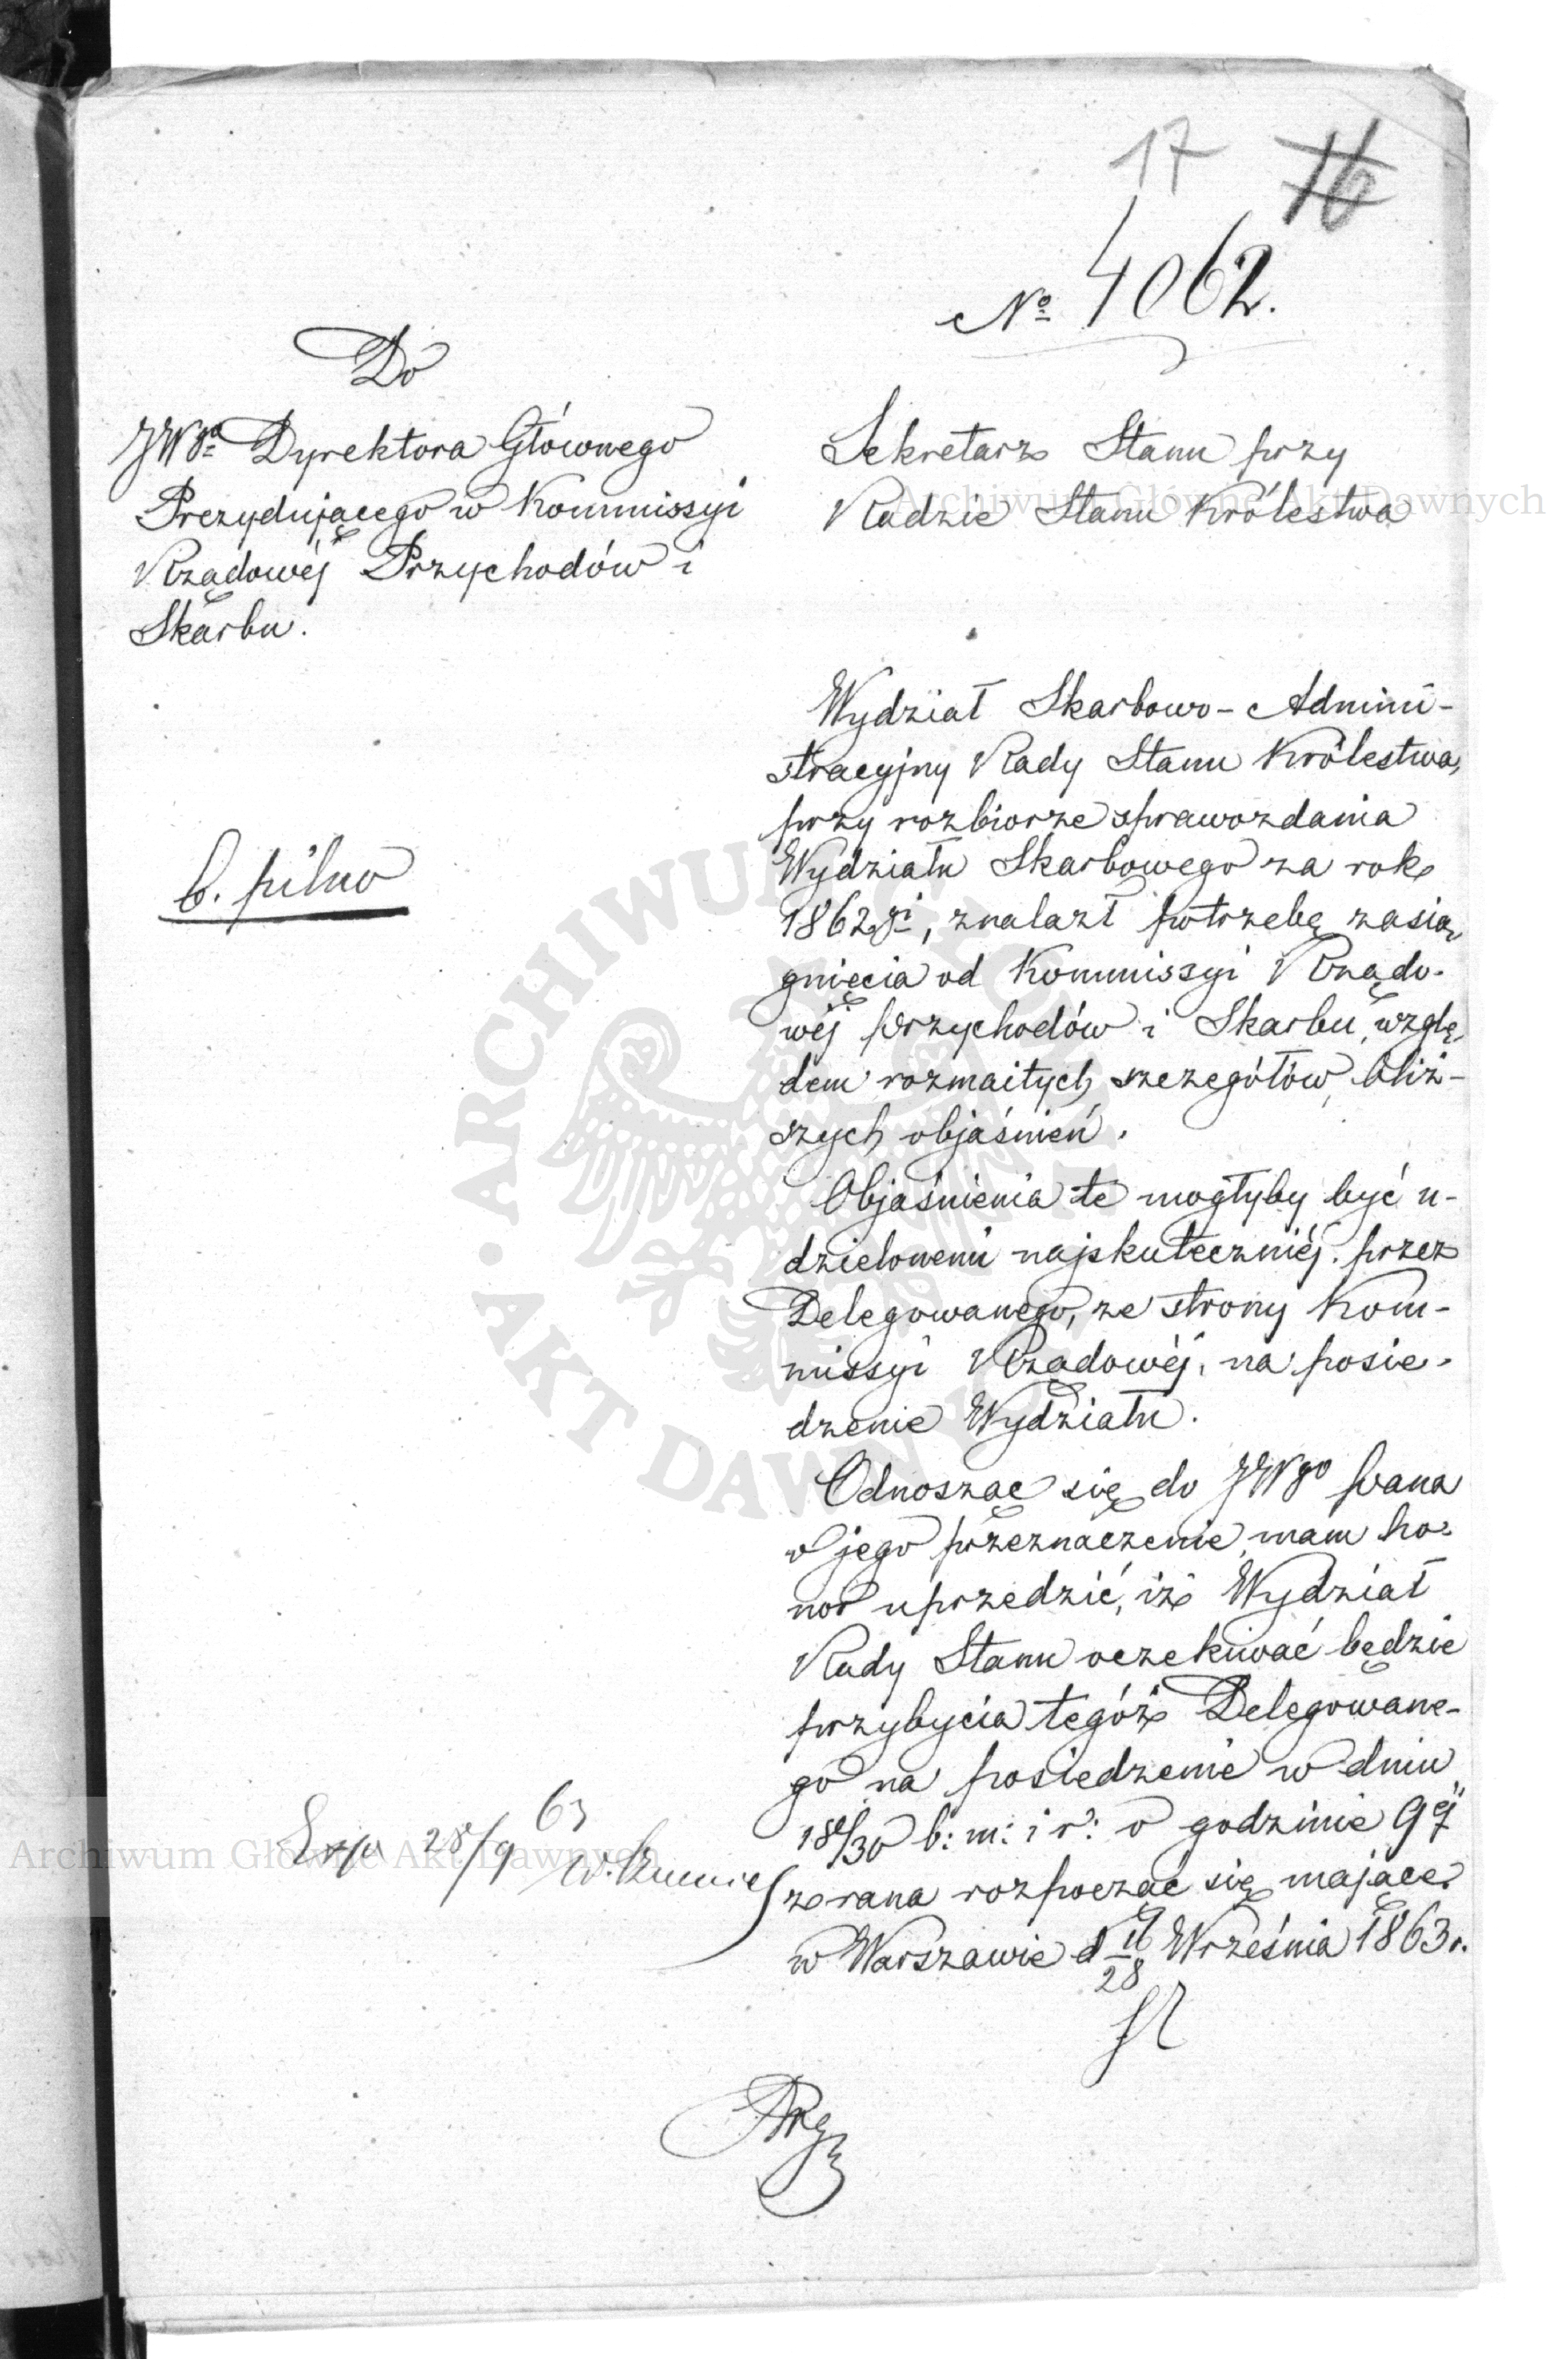 17 16
No 4062.
Do
JWgo Dyrektora Głównego
Prezydującego w Kommissyi
Rządowéj Przychodów i
Skarbu.
b. pilno
Sekretarz Stanu przy
Radzie Stanu Królestwa
Wydział Skarbowo-Admini-
stracyjny Rady Stanu Królestwa,
przy rozbiorze sprawozdania
Wydziału Skarbowego za rok
1862gi, znalazł potrzebę zasią-
gnięcia od Kommissyi Rządo-
wéj Przychodów i Skarbu, wzglę-
dem rozmaitych szczegółów, bliż-
szych objaśnień.
Objaśnienia te mogłyby być u-
dzielonemi najskuteczniéj przez
Delegowanego, ze strony Kom-
missyi Rządowéj, na posie-
dzenie Wydziału.
Odnosząc się do JWgo Pana
o jego przeznaczenie, mam ho-
nor uprzedzić, iż Wydział
Rady Stanu oczekiwać będzie
przybycia tegóż Delegowane-
go na posiedzenie w dniu
18/30 b: m: i r: o godzinie 9éj
z rana rozpocząć się mające.
w Warszawie d 16/28 Września 1863 r.
Exp 28/9 63
ARCHIWUM GŁÓWNE AKT DAWNYCH
Archiwum Główne Akt Dawnych
Archiwum Główne Akt Dawnych